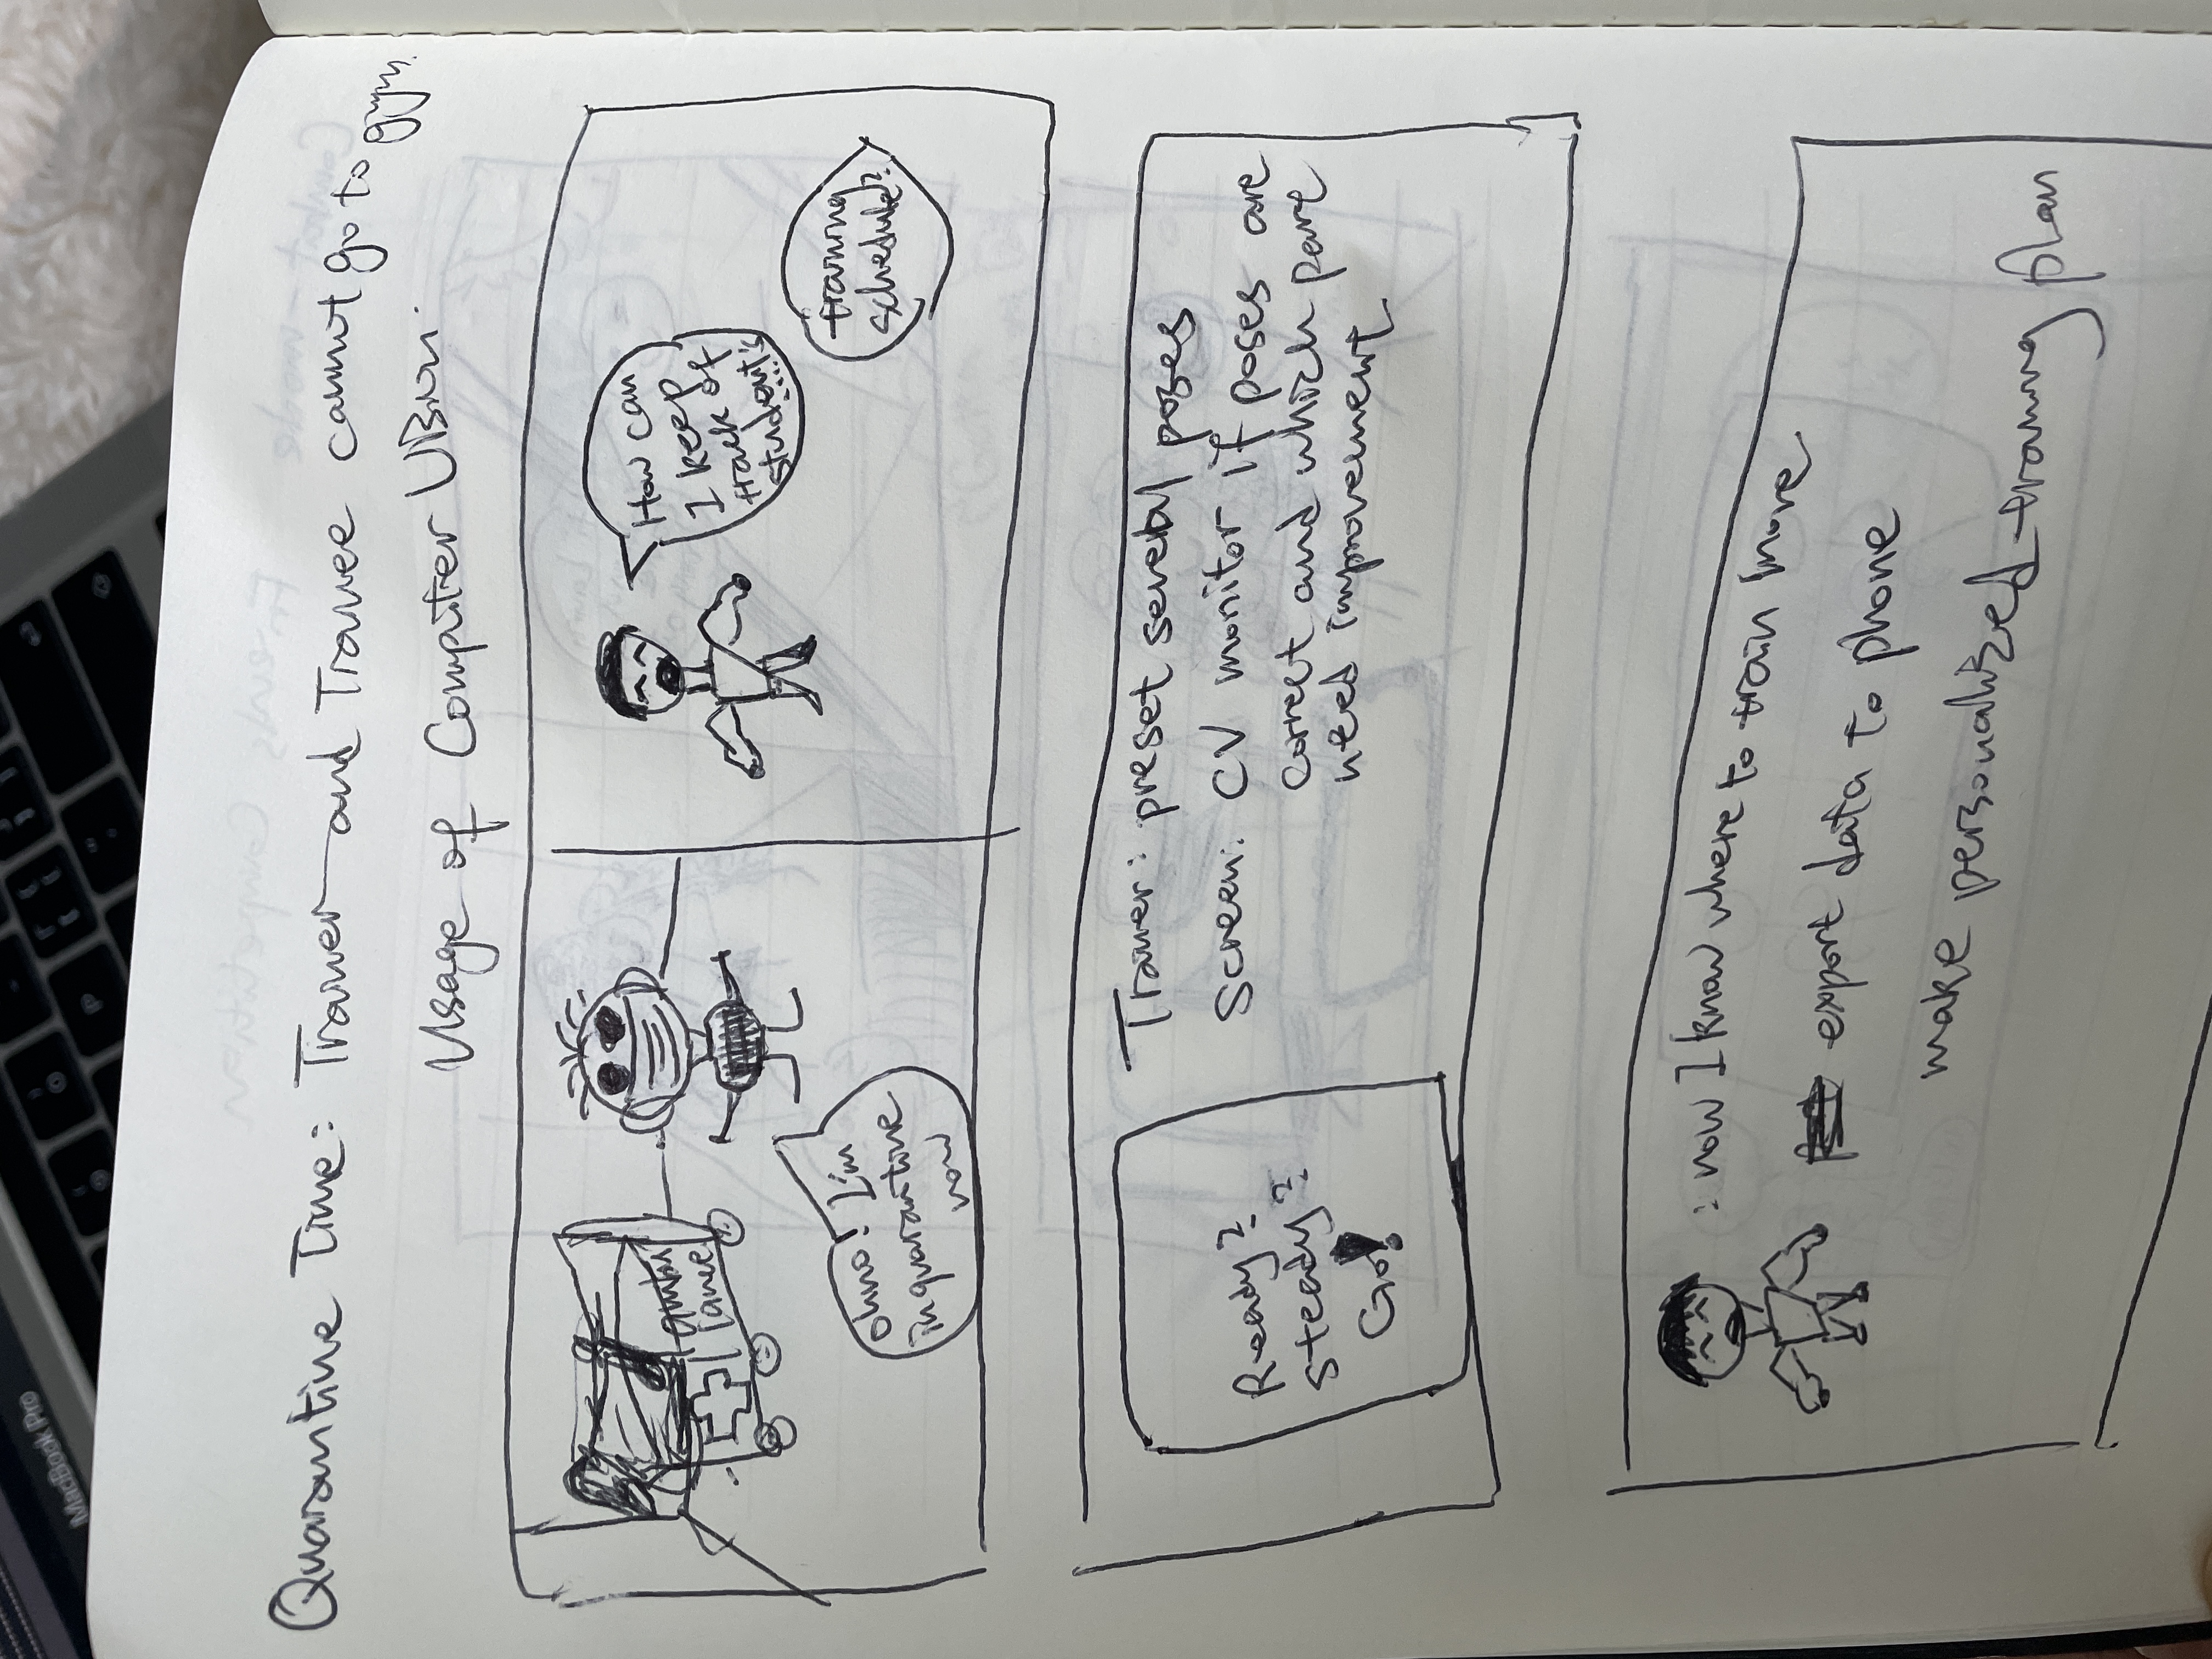 MacBook Pro
P
Quarantine Time: Trainer and Trainee cannot go to gym.
Usage of Computer
ambu
lance
oh no! I'm
in quarantine
now
How can
I keep
track of
student's
...
training
schedule?
Ready?
steady?
Go!
Trainer: preset several poses
Screen: CV monitor if poses are
correct and which part
need improvement
: now I know where to train more
export data to phone
make personalized training plan